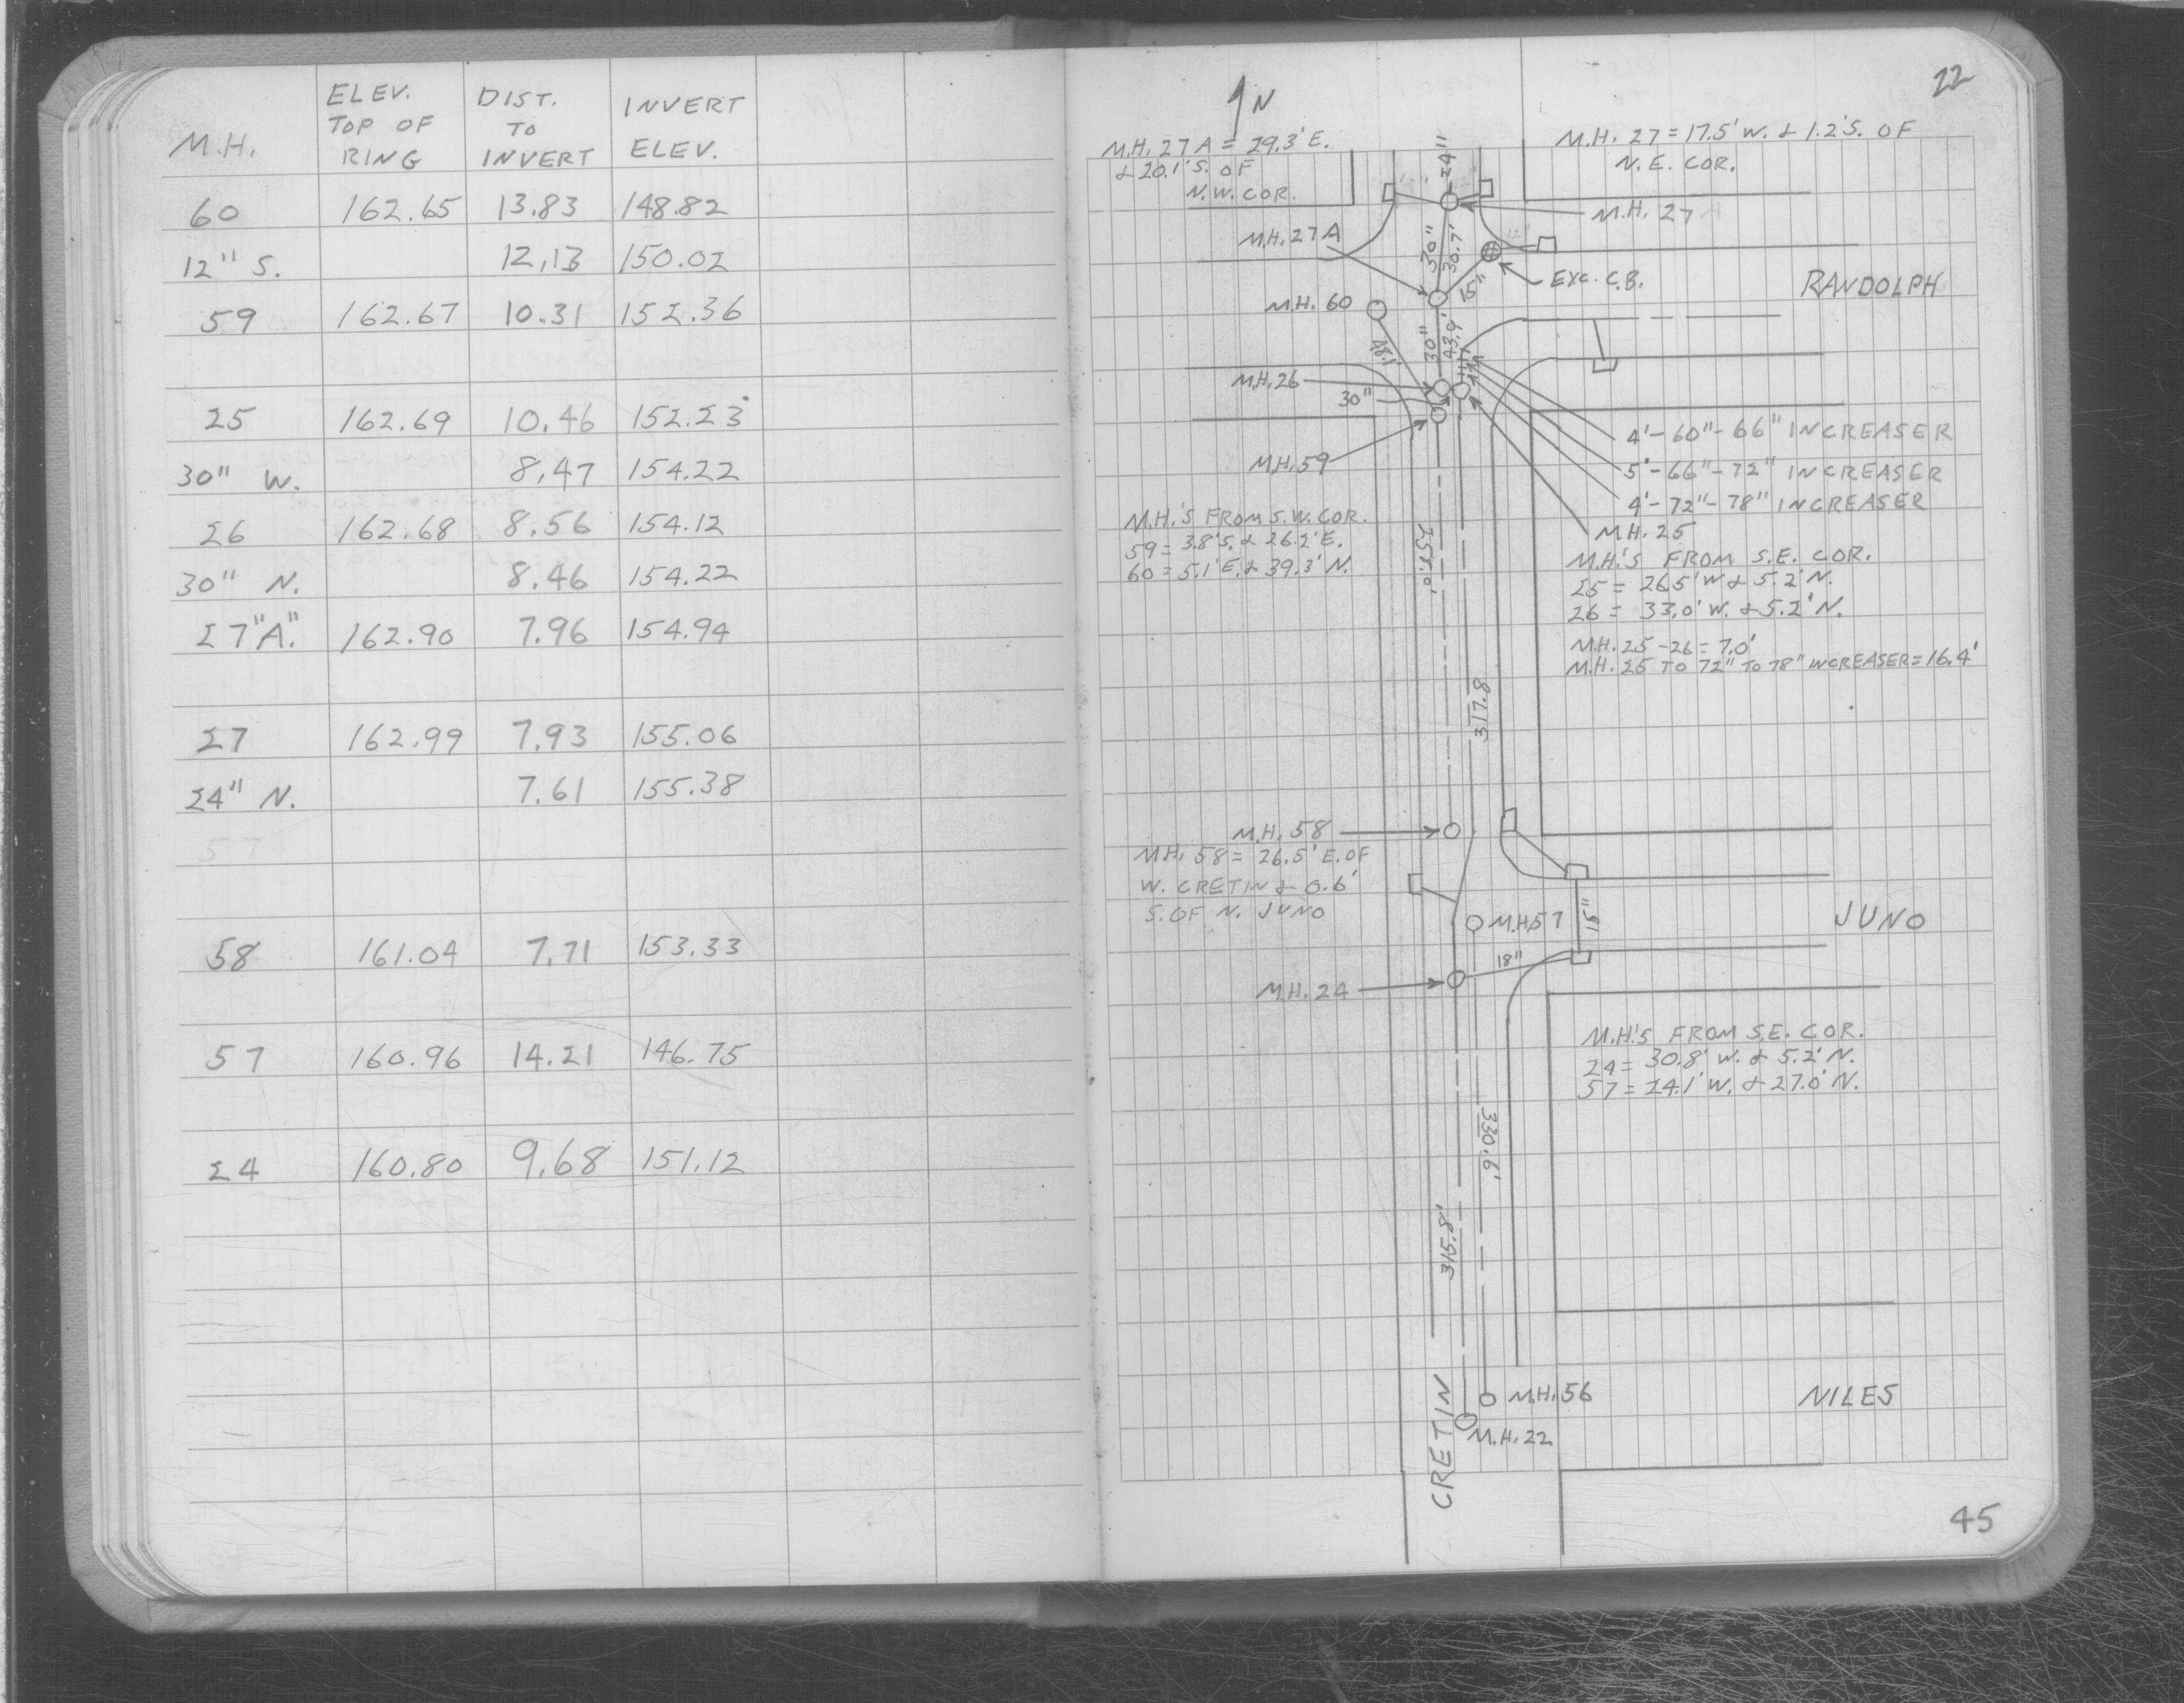 M.H. ELEV. TOP OF RING DIST. TO INVERT INVERT ELEV.
60 162.65 13.83 148.82
12" S. 12.13 150.02
59 162.67 10.31 152.36
25 162.69 10.46 152.23
30" W. 8.47 154.22
26 162.68 8.56 154.12
30" N. 8.46 154.22
27"A." 162.90 7.96 154.94
27 162.99 7.93 155.06
24" N. 7.61 155.38
57
58 161.04 7.71 153.33
57 160.96 14.21 146.75
24 160.80 9.68 151.12
22
N
M.H. 27A = 29.3' E.
& 20.1' S. OF
N.W. COR.
M.H. 27 = 17.5' W. & 1.2' S. OF
N.E. COR.
24"
M.H. 27
M.H. 27A
30"
30.7'
12"
15"
EXC. C.B.
RANDOLPH
M.H. 60
48.1
30"
43.9'
M.H. 26
30"
M.H. 59
4'-60"-66" INCREASER
5'-66"-72" INCREASER
4'-72"-78" INCREASER
M.H. 25
M.H.'S FROM S.W. COR.
59 = 3.8' S. & 26.2' E.
60 = 5.1' E. & 39.3' N.
M.H.'S FROM S.E. COR.
25 = 26.5' W & 5.2' N.
26 = 33.0' W. & 5.2' N.
M.H. 25-26 = 7.0'
M.H. 25 TO 72" TO 78" INCREASER = 16.4'
317.8
M.H. 58
M.H. 58 = 26.5' E. OF
W. CRETIN & 0.6'
S. OF N. JUNO
M.H.57
15"
JUNO
18"
M.H. 24
M.H.'S FROM S.E. COR.
24 = 30.8' W. & 5.2' N.
57 = 24.1' W. & 27.0' N.
330.6'
315.8'
CRETIN
M.H. 56
M.H. 22
NILES
45